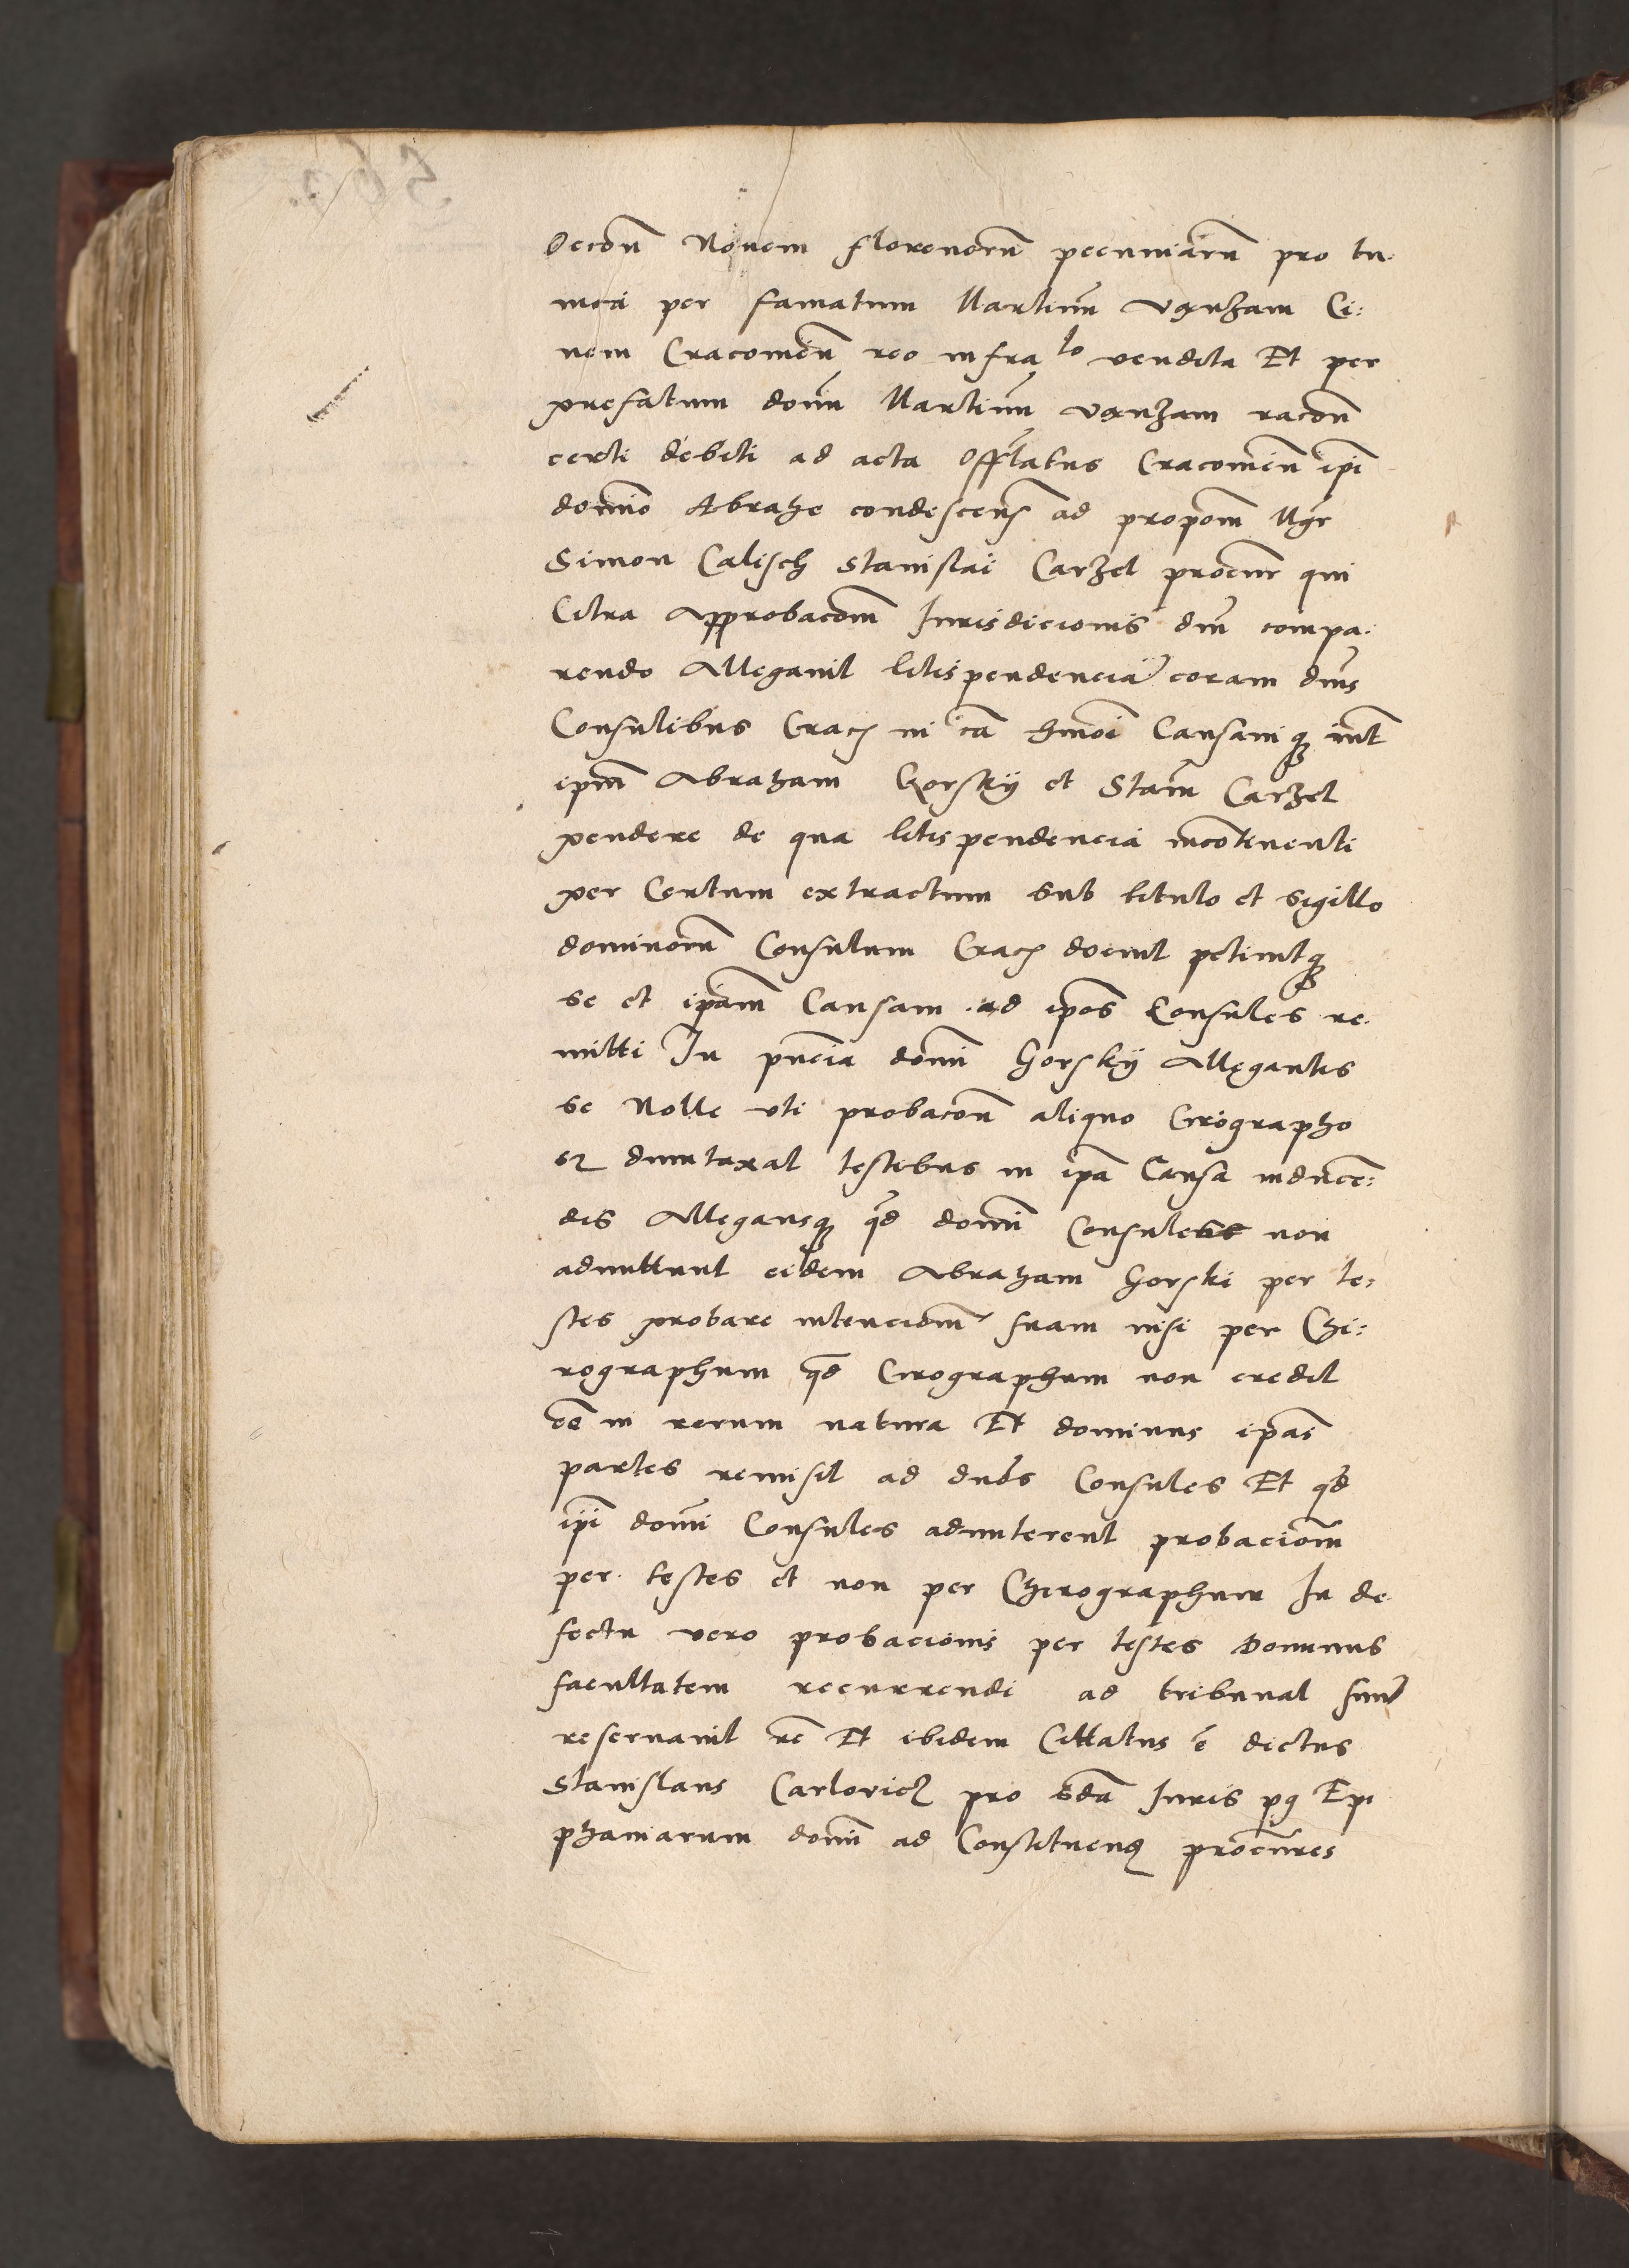 Decem Novem florenorum pecuniarum pro tu-
nica per famatum Martinum Vąnzam Ci:
vem Cracovien reo infra to vendita Et per
prefatum domin Martinum Vąnzam racon
certi debiti ad acta Offitiatus Cracovien ipsi
domino Abrahe condescens ad propom Mgr
Simon Calisch Stanislai Carzel procur qui
Citra Approbacom Jurisdicionis dni compa-
rendo Allegavit litispendenciã coram dnis
Consulibus Crac in cã hmoi Causamq int
ipm Abraham Gorsky et Stam Carzel
pendere de qua litispendencia incontinenti
per Certum extractum sub titulo et sigillo
dominorũ Consulum Crac docuit petivitq
se et ipam Causam ad ipos Consules re-
mitti In pncia domi Gorsky Allegantis
se Nolle uti probacom aliquo Cirographo
sz dumtaxat testibus in ipa Causa inducen:
dis Allegansq qd domi Consules non
admittunt eidem Abraham Gorski per te-
stes probare intenciom suam nisi per Chi:
rographum qd Cirographum non credit
eẽ in rerum natura Et dominus ipas
partes remisit ad dnos Consules Et qd
ipi domi Consules admiterent probaciom
per testes et non per Chirographum In de-
fectu vero probacionis per testes Dominus
facultatem recurrendi ad tribunal suum
reservavit re Et ibidem Cittatus ẽ dictus
Stanislaus pro 2da Juris pg Epi
phaniarum domi ad Constituend procures